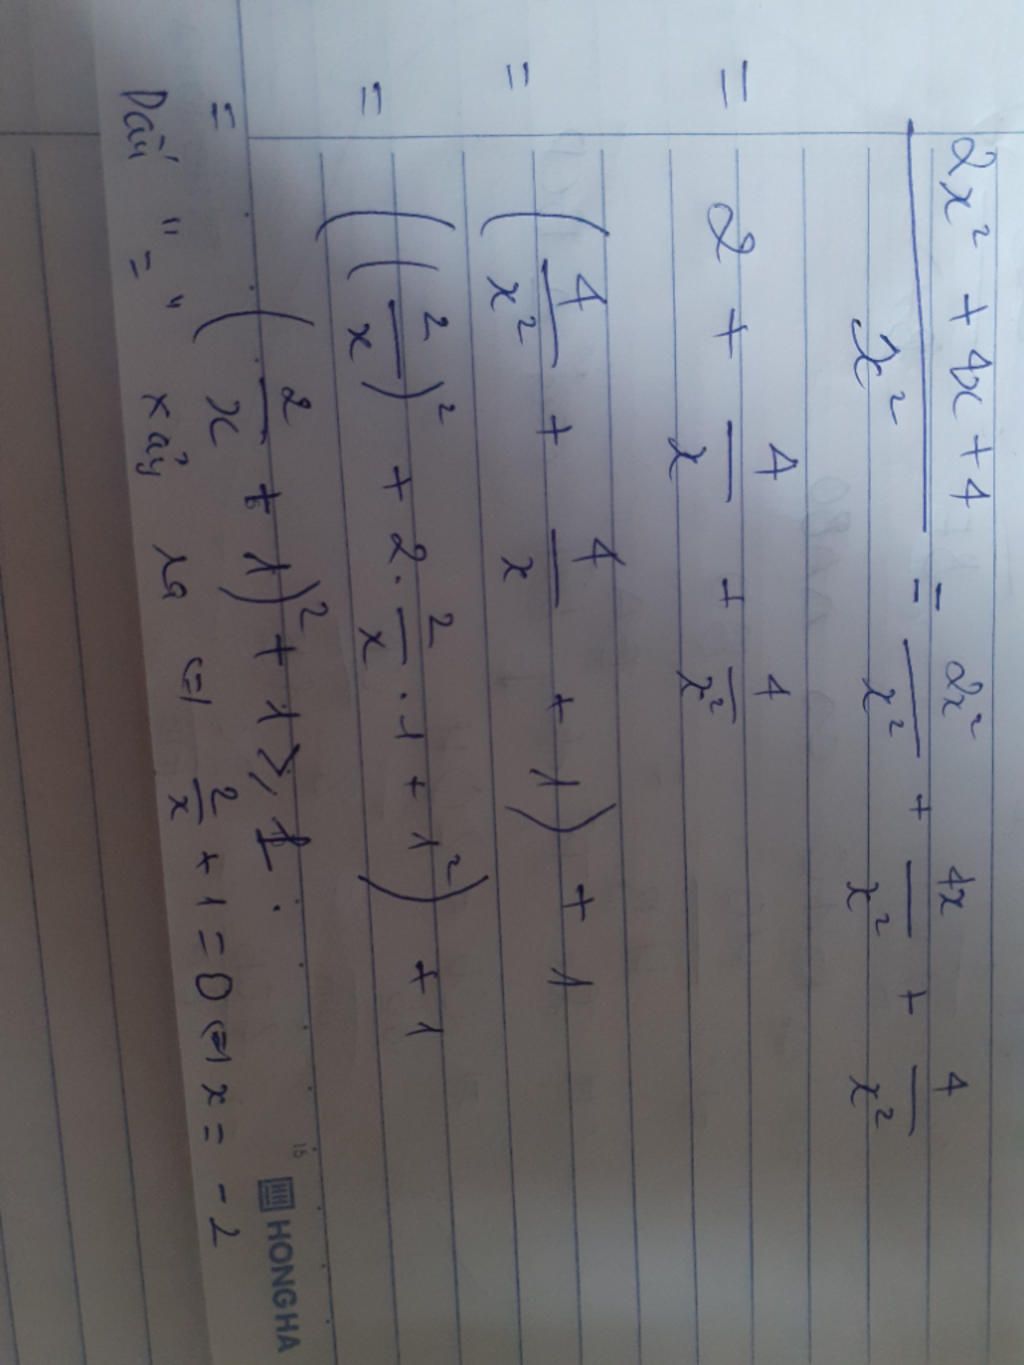 (2x² + 4x + 4)/x² = 2x²/x² + 4x/x² + 4/x²
= 2 + 4/x + 4/x²
= (4/x² + 4/x + 1) + 1
= ((2/x)² + 2 . 2/x . 1 + 1²) + 1
= (2/x + 1)² + 1 ⩾ 1 .
Dấu "=" xảy ra <=> 2/x + 1 = 0 <=> x = -2
15
HONG HA